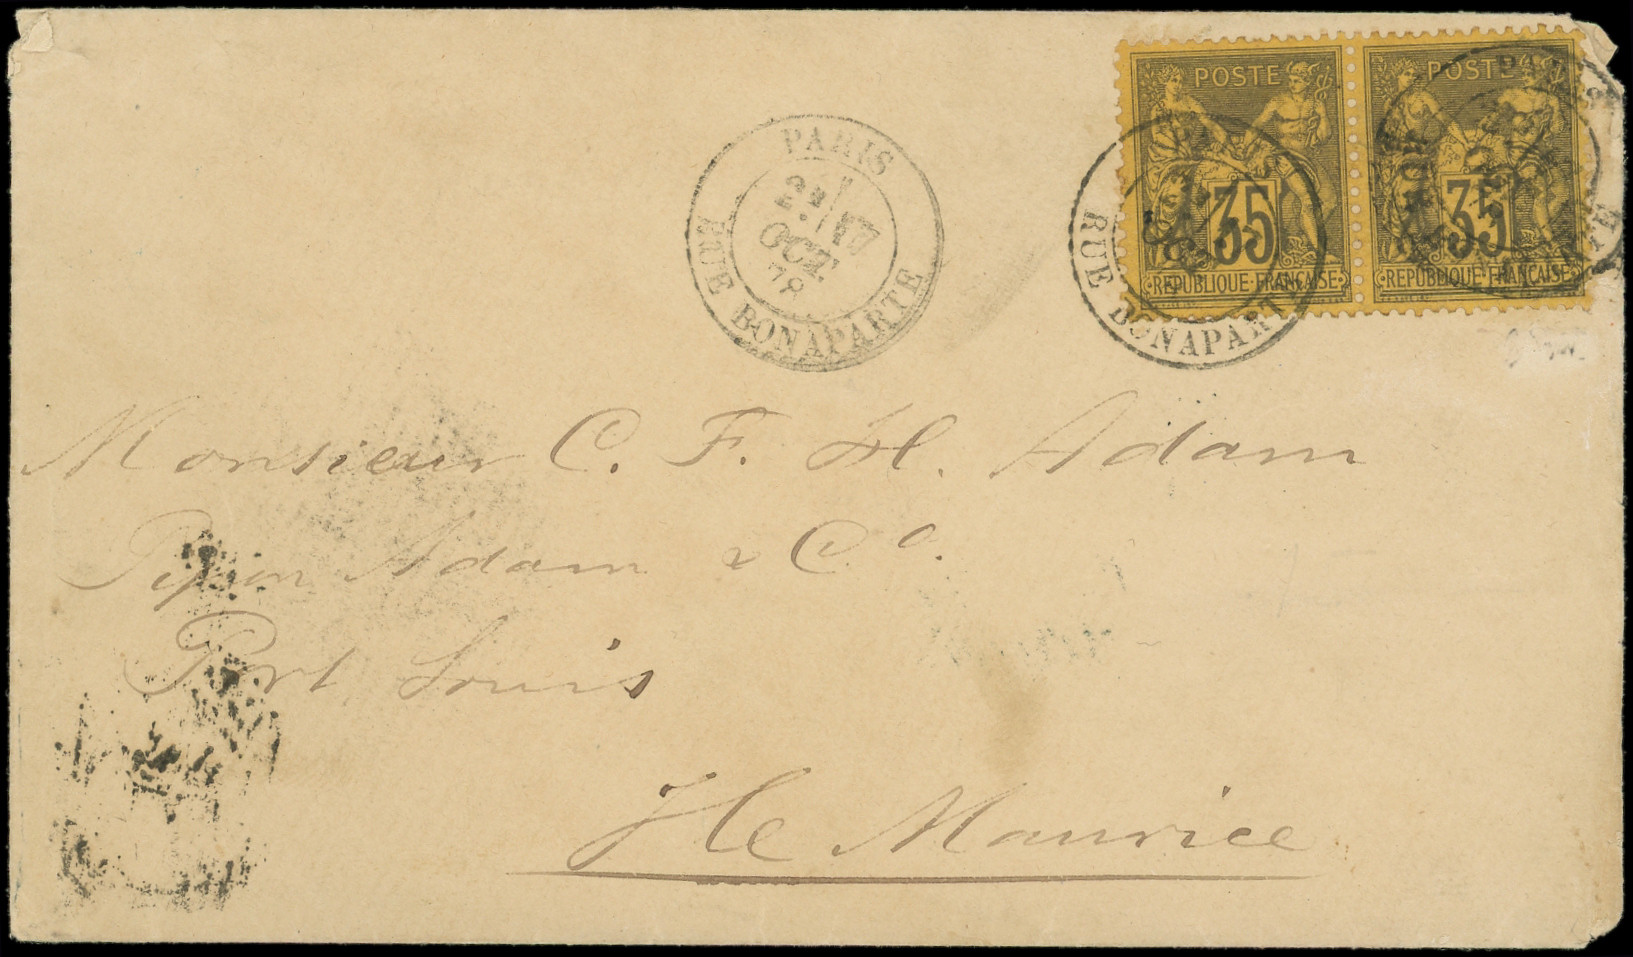 POSTE
35
REPUBLIQUE FRANÇAISE
POSTE
35
REPUBLIQUE FRANÇAISE
PARIS
17
OCT
78
RUE BONAPARTE
RUE BONAPARTE
Monsieur C. F. H. Adam
Pipon Adam & Co.
Port Louis
Ile Maurice